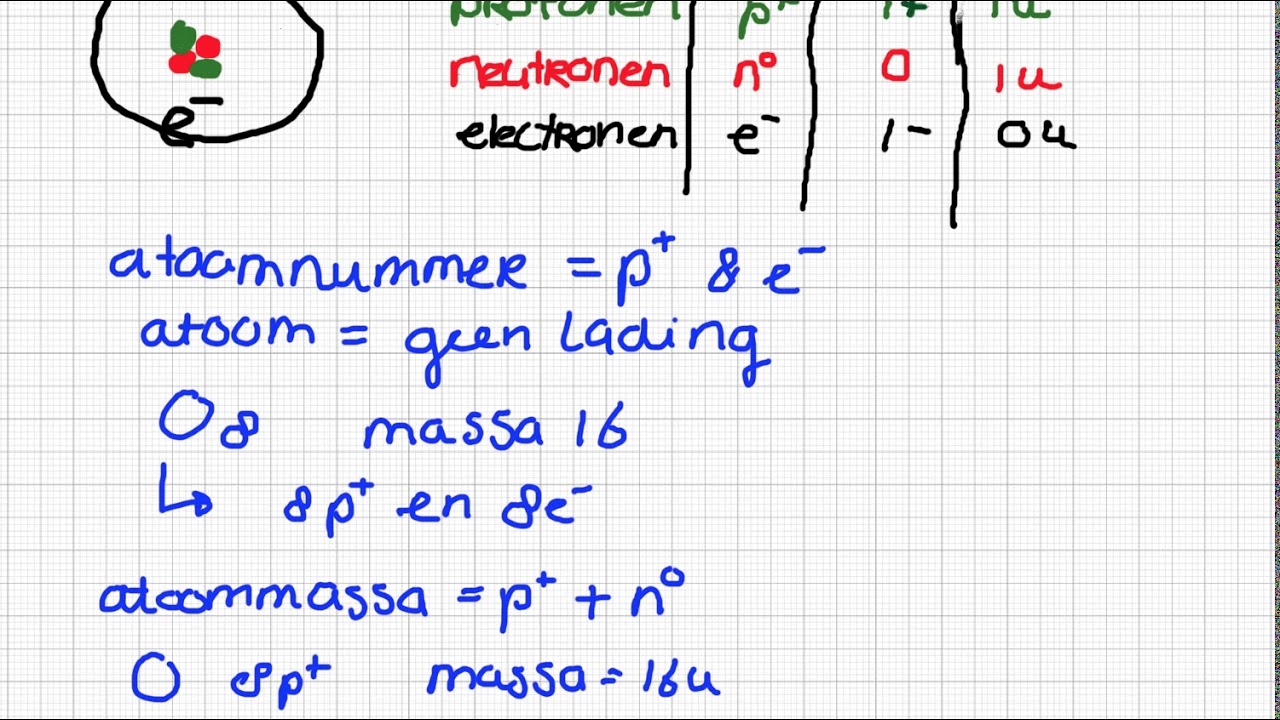 protonen p+ 1+ 1u
neutronen n⁰ 0 1u
e⁻
electronen e⁻ 1- 0u
atoomnummer = p⁺ & e⁻
atoom = geen lading
O 8 massa 16
↳ 8p⁺ en 8e⁻
atoommassa = p⁺ + n⁰
O 8p⁺ massa = 16u